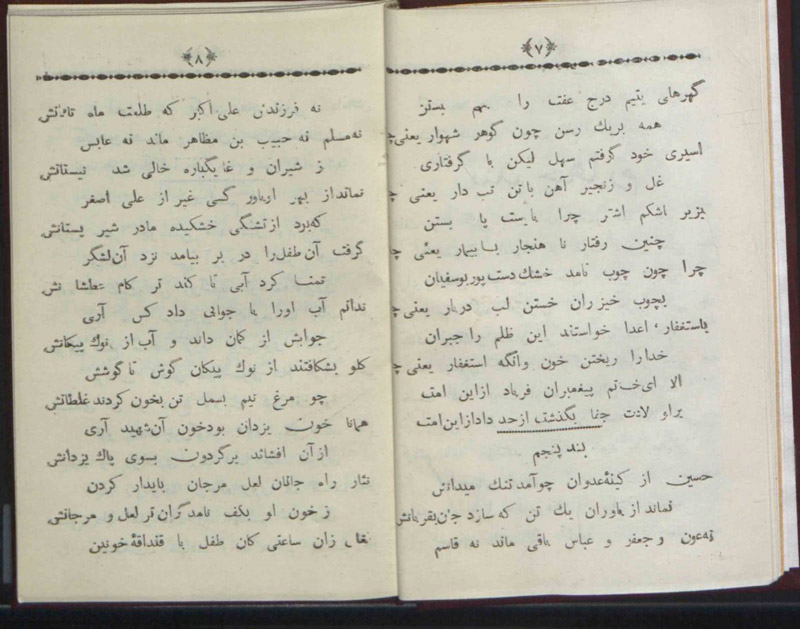 ۷
گهرهای یتیم درج عفت را بهم بستن
همه بریك رسن چون گوهر شهوار یعنی چ
اسیری خود گرفتم سهل لیکن با گرفتاری
غل و زنجیر آهن باتن تب دار یعنی چ
بزیر اشکم اشتر چرا بایست پا بستن
چنین رفتار نا هنجار با بیمار یعنی چ
چرا چون چوب نامد خشك دست پور بوسفیان
بچوب خیزران خستن لب دربار یعنی چ
باستغفار، اعدا خواستند این ظلم را جبران
خدارا ریختن خون وانگه استغفار یعنی چ
الا ای ختم پیغمبران فریاد ازاین امت
براولادت جفا بگذشت ازحد داد ازاین امت
بند پنجم
حسین از کینهٔ عدوان چو آمد تنك میدانش
نماند از یاوران یك تن که سازد جان بقربانش
نه عون و جعفر و عباس باقی ماند نه قاسم
۸
نه فرزندش علی اکبر که طلعت ماه تابانش
نه مسلم نه حبیب بن مظاهر ماند نه عابس
ز شیران و غا یکباره خالی شد نیستانش
نماند از بهر او یاور کسی غیر از علی اصغر
که بود از تشنگی خشکیده مادر شیر پستانش
گرفت آن طفل را در بر بیامد نزد آن لشگر
تمنا کرد آبی تا کند تر کام عطشانش
ندانم آب اورا یا جوابی داد کس آری
جوابش از کمان داند و آب از نوك پیکانش
گلو بشکافتند از نوك پیکان گوش تا گوشش
چو مرغ نیم بسمل تن بخون کردند غلطانش
همانا خون یزدان بود خون آن شهید آری
از آن افشاند برگردون بسوی پاك یزدانش
نثار راه جانان لعل مرجان بایدار کردن
ز خون او بکف نامد گران تر لعل و مرجانش
زان ساعتی کان طفل با قنداقهٔ خونین